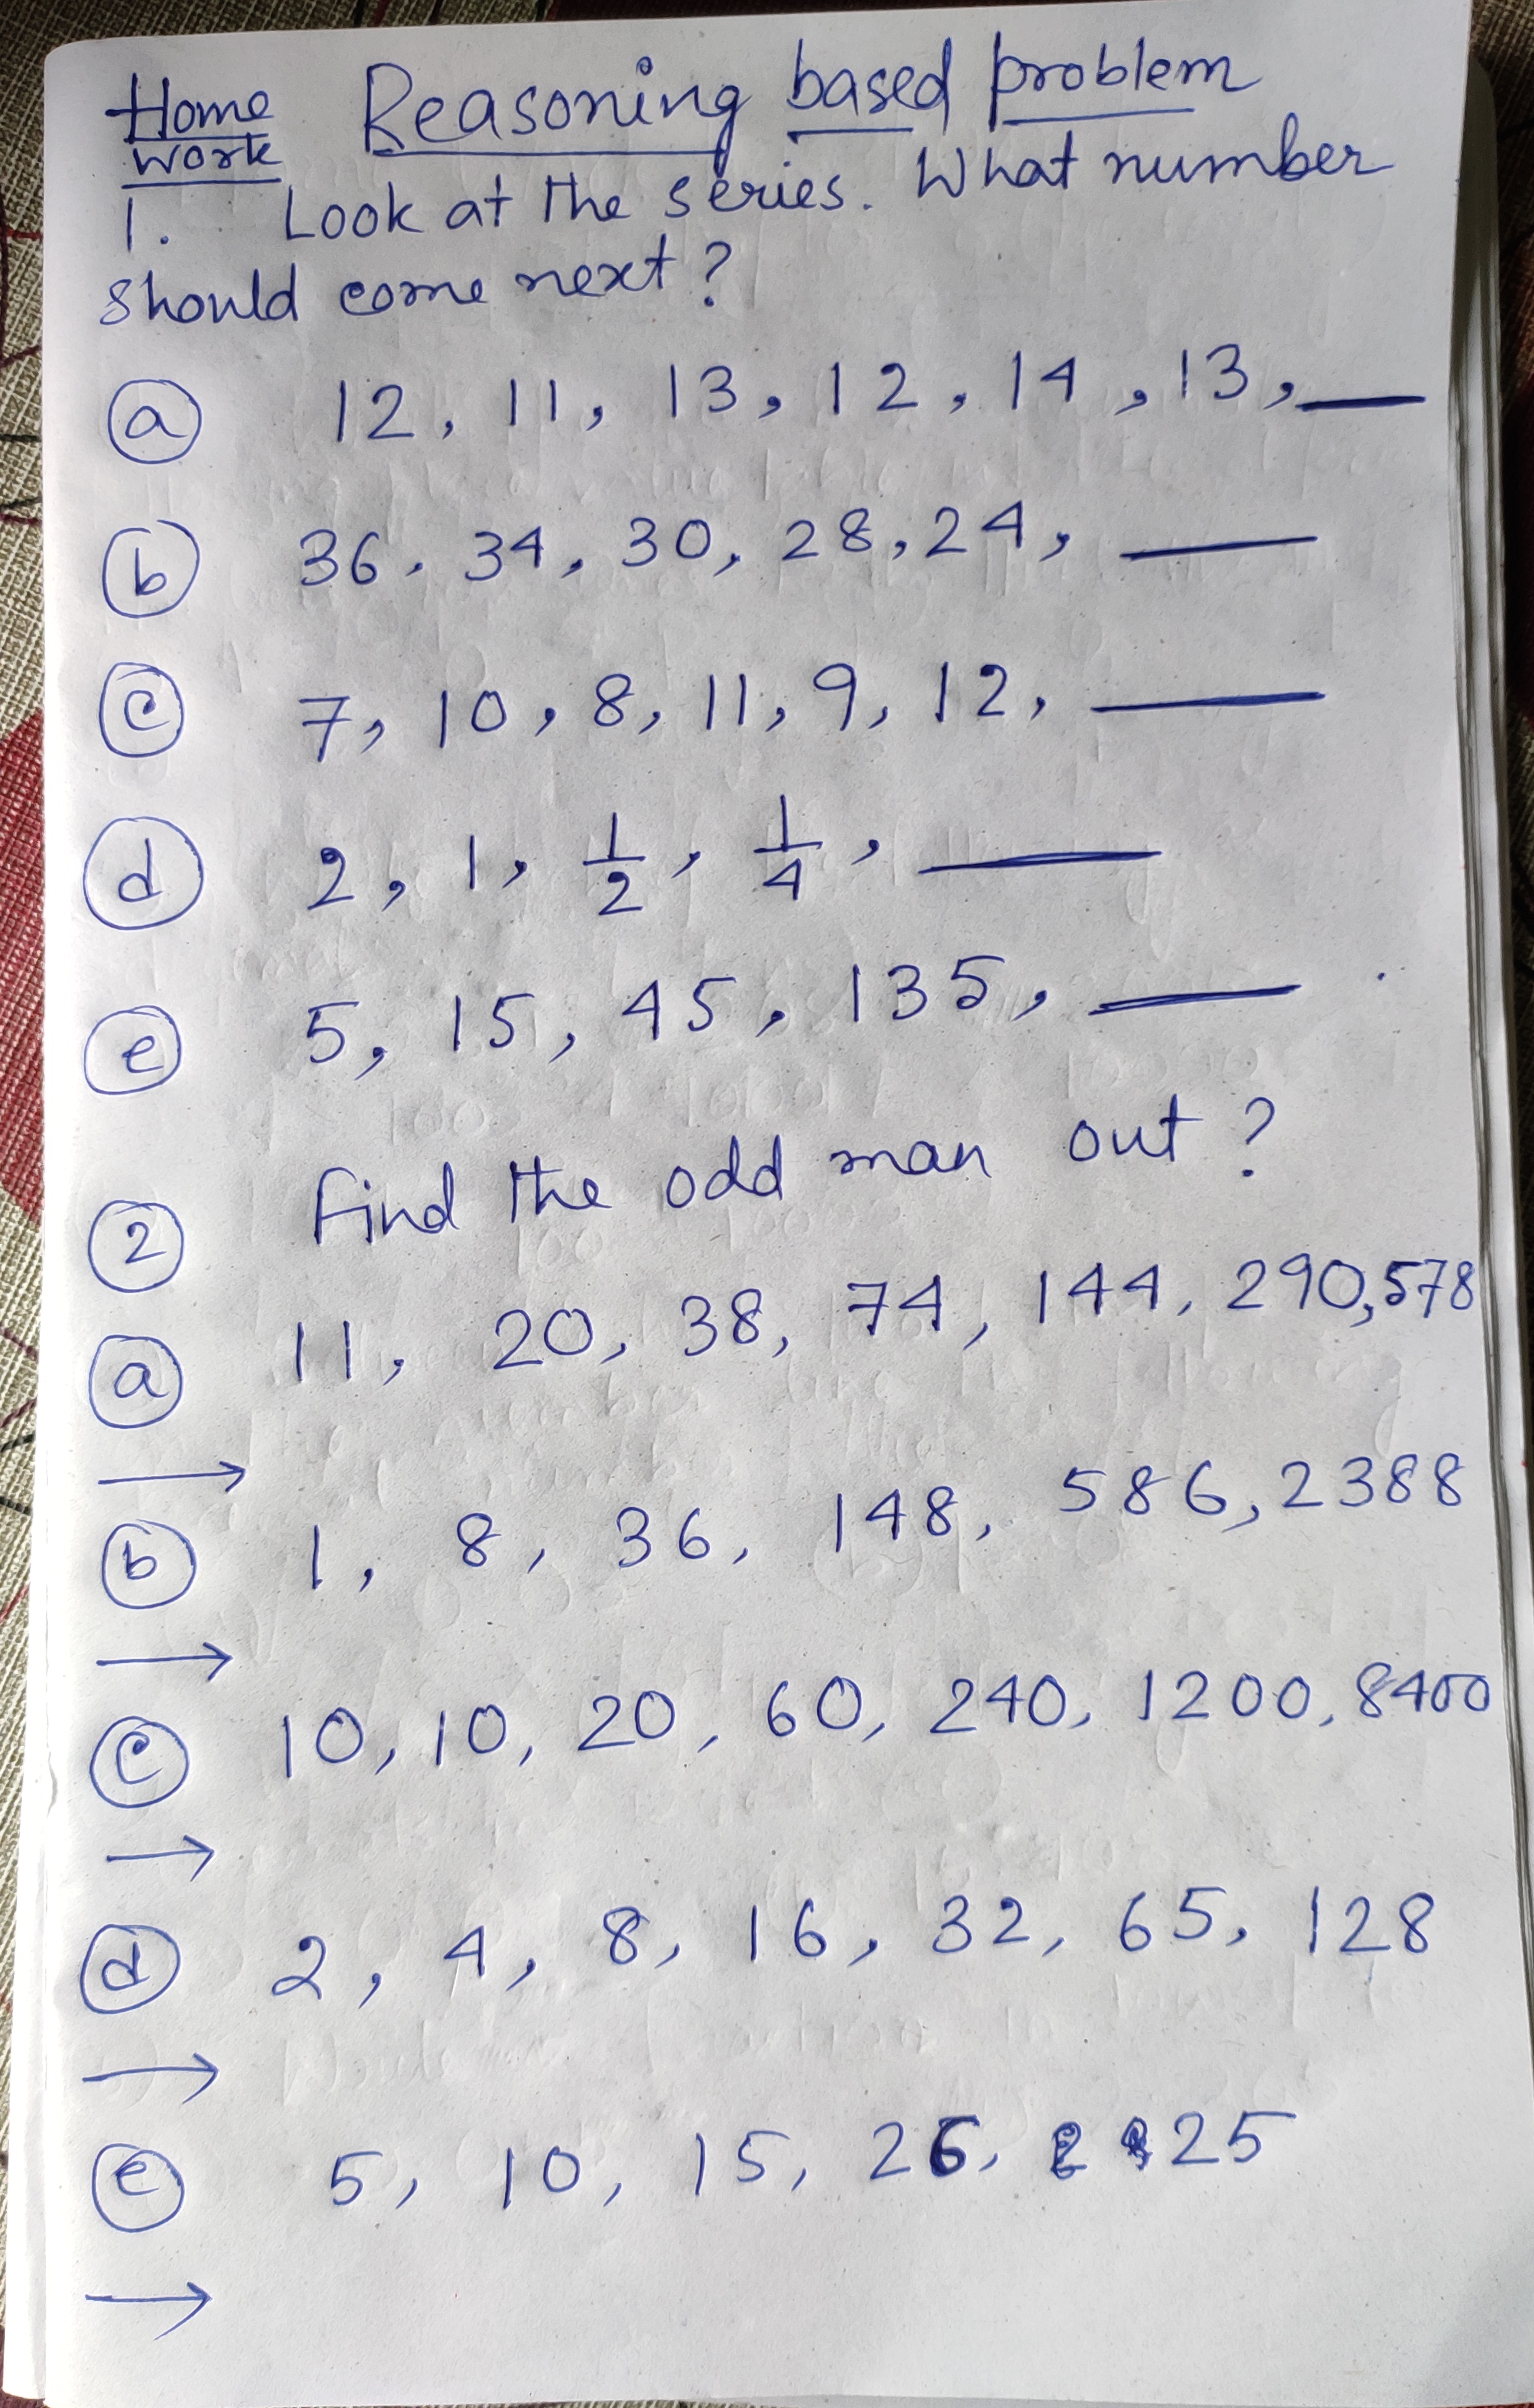 Home Reasoning based problem
work
1. Look at the series. What number
should come next?
(a) 12, 11, 13, 12, 14, 13, __
(b) 36, 34, 30, 28, 24, __
(c) 7, 10, 8, 11, 9, 12, __
(d) 2, 1, 1/2, 1/4, __
(e) 5, 15, 45, 135, __
(2) Find the odd man out?
(a) 11, 20, 38, 74, 144, 290, 578
→
(b) 1, 8, 36, 148, 586, 2388
→
(c) 10, 10, 20, 60, 240, 1200, 8400
→
(d) 2, 4, 8, 16, 32, 65, 128
→
(e) 5, 10, 15, 26, 25
→